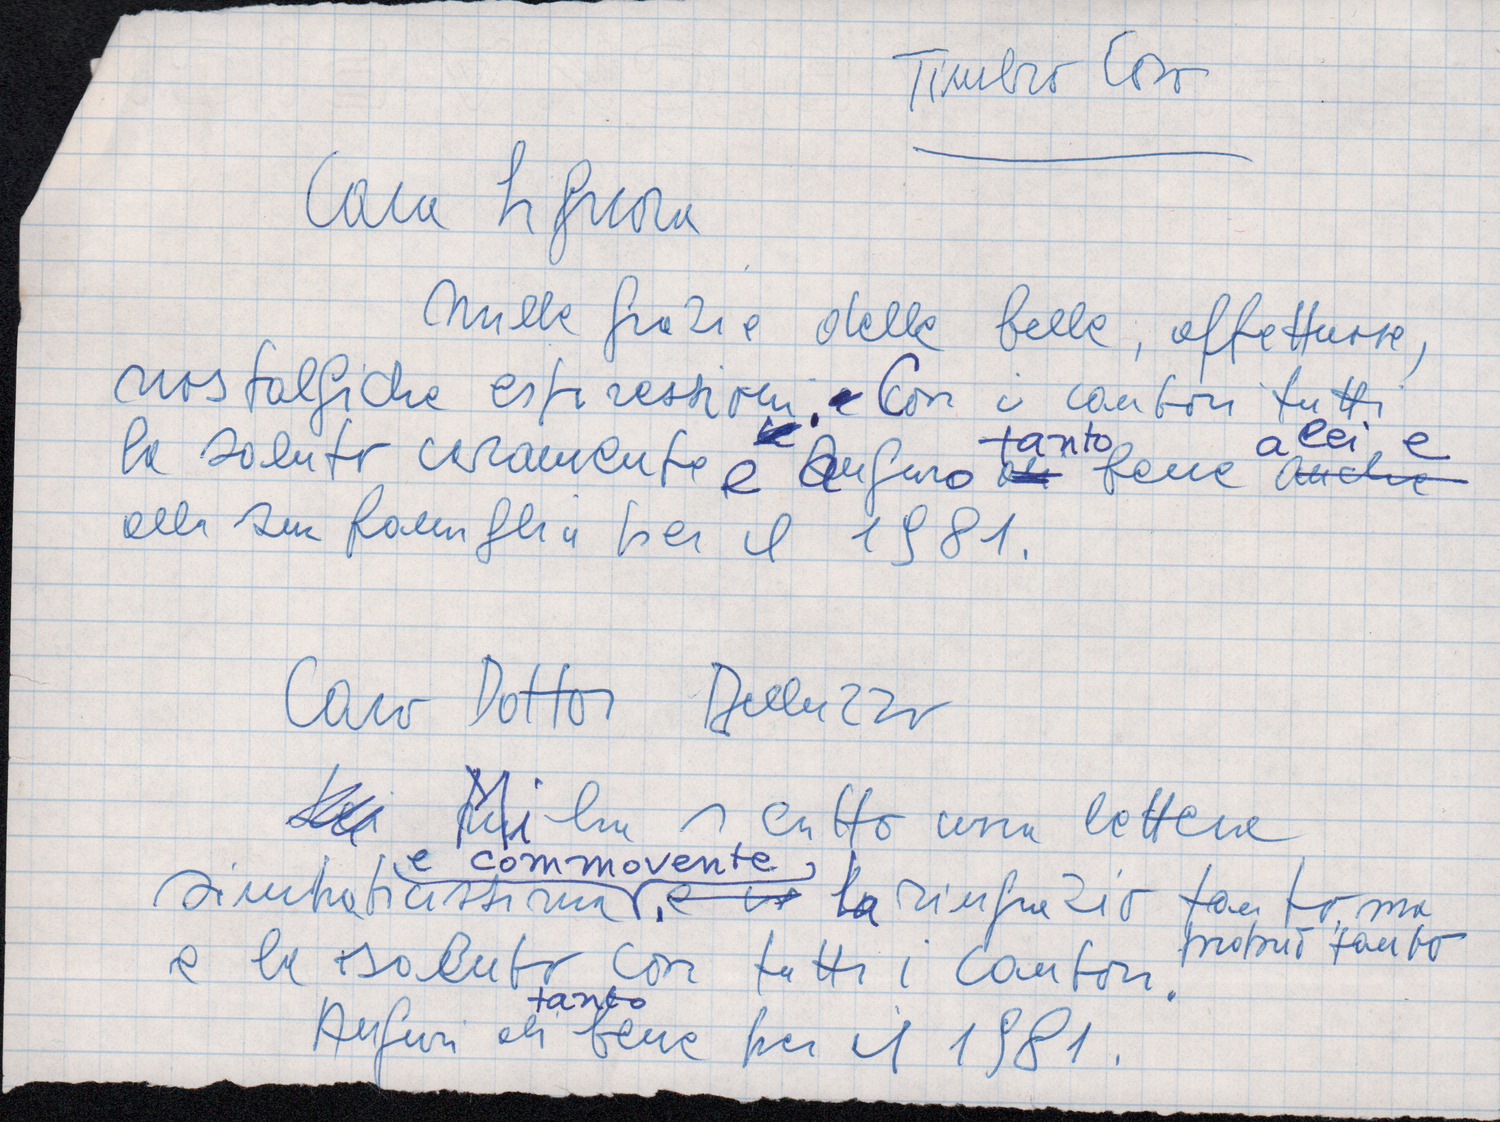 Timbro Coro
Cara Signora
Mille grazie delle belle, affettuose,
nostalgiche espressioni. Con i cantori tutti
tanto a lei e
la saluto caramente e auguro di bene anche
alla sua famiglia per il 1981.
Caro Dottor Delluzzo
Mi ha scritto una lettera
e commovente,
simpaticissima, e la ringrazio tanto, ma
proprio tanto
e la saluto con tutti i cantori.
tanto
Auguri di bene per il 1981.